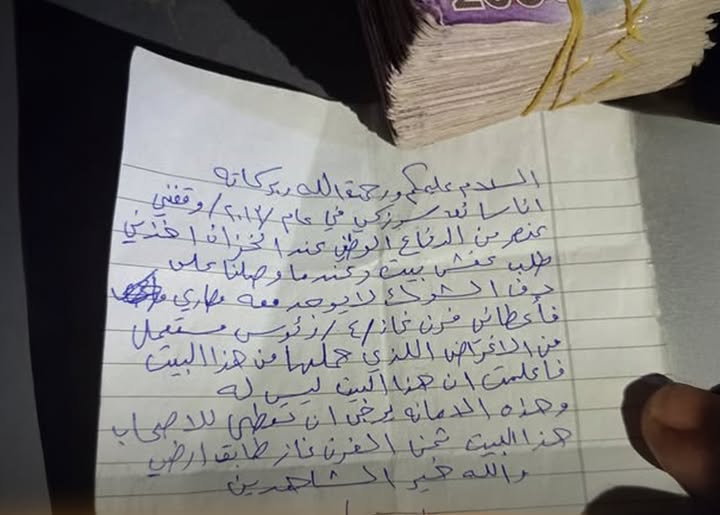 200
السلام عليكم ورحمة الله وبركاته
انا سائق سوزكي في عام /٢٠١٧/ وقفني
عنصر من الدفاع الوطني عند الخزان اخذني
طلب عفش بيت وعندما وصلنا على
دف الشوك لا يوجد معه مصاري
فأعطاني فرن غاز /٤/ رئوس مستعمل
من الاغراض اللذي حملها من هذا البيت
فاعلمت ان هذا البيت ليس له
وهذه الامانه يرجى ان تعطى للاصحاب
هذا البيت ثمن الفرن غاز طابق ارضي
والله خير الشاهدين